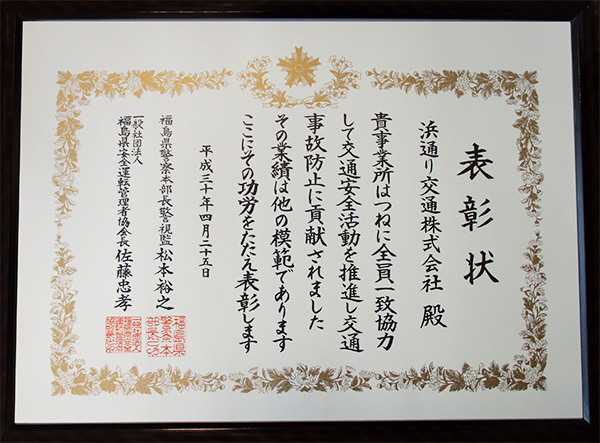 表彰状
浜通り交通株式会社 殿
貴事業所はつねに全員一致協力
して交通安全活動を推進し交通
事故防止に貢献されました
その業績は他の模範であります
ここにその功労をたたえ表彰します
平成三十年四月二十五日
福島県警察本部長警視監 松本裕之
一般社団法人
福島県安全運転管理者協会長 佐藤忠孝
福島県
警察本
部長之印